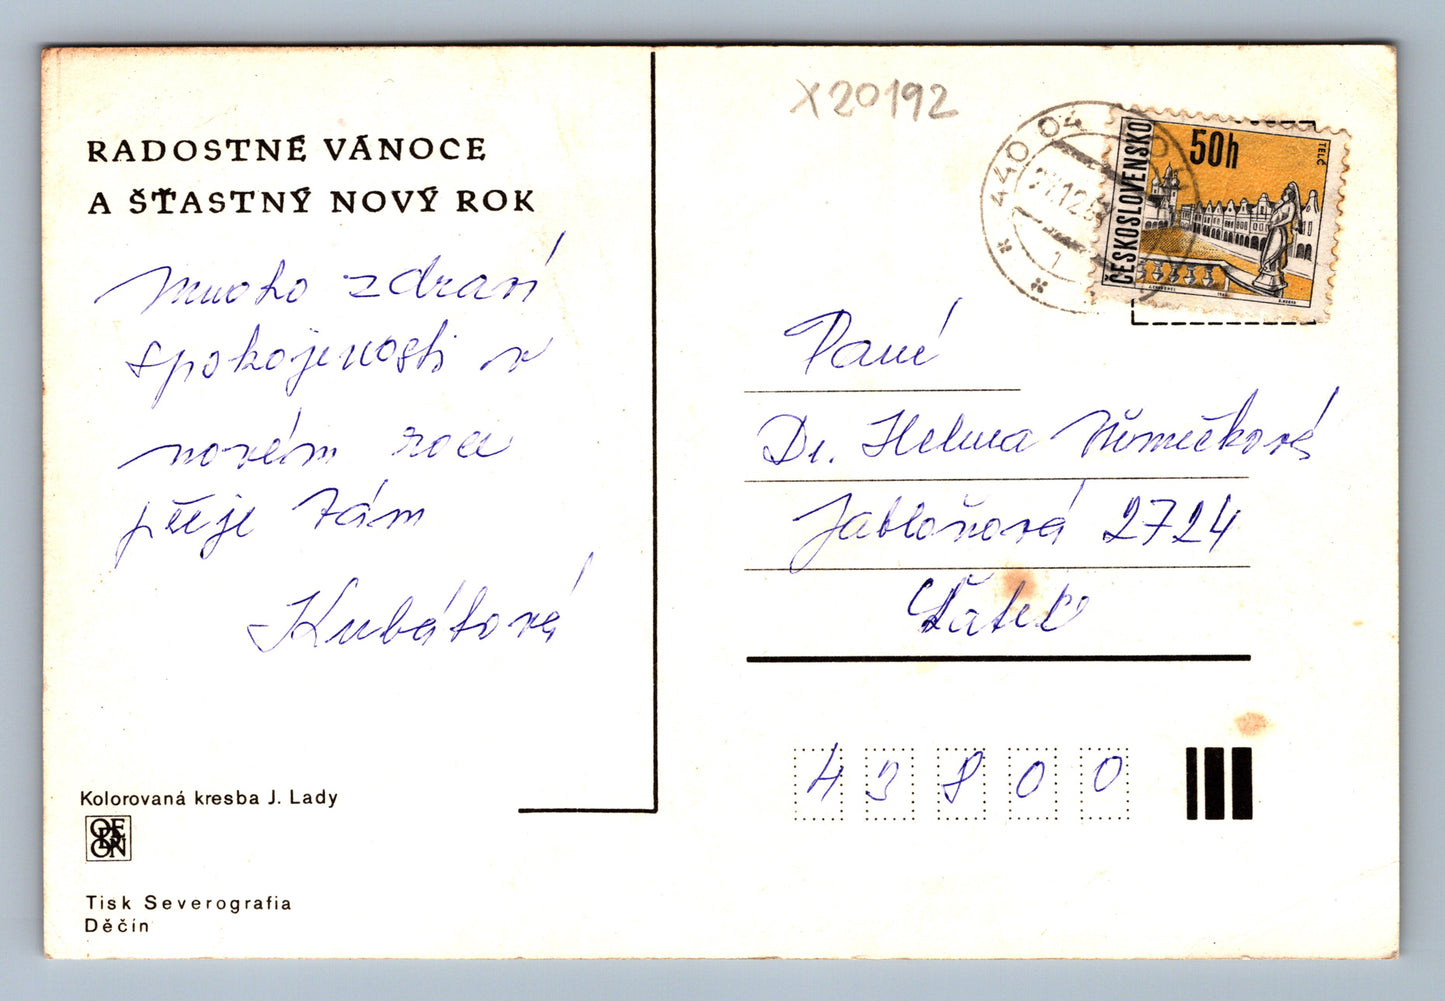 RADOSTNÉ VÁNOCE
A ŠŤASTNÝ NOVÝ ROK
Mnoho zdraví
spokojenosti v
novém roce
přeje Vám
Kubátová
Kolorovaná kresba J. Lady
ODEON
Tisk Severografia
Děčín
X20192
440 04
1
ČESKOSLOVENSKO
50h
TELČ
Paní
Dr. Helena Němečková
Jabloňová 2724
Žatec
43800